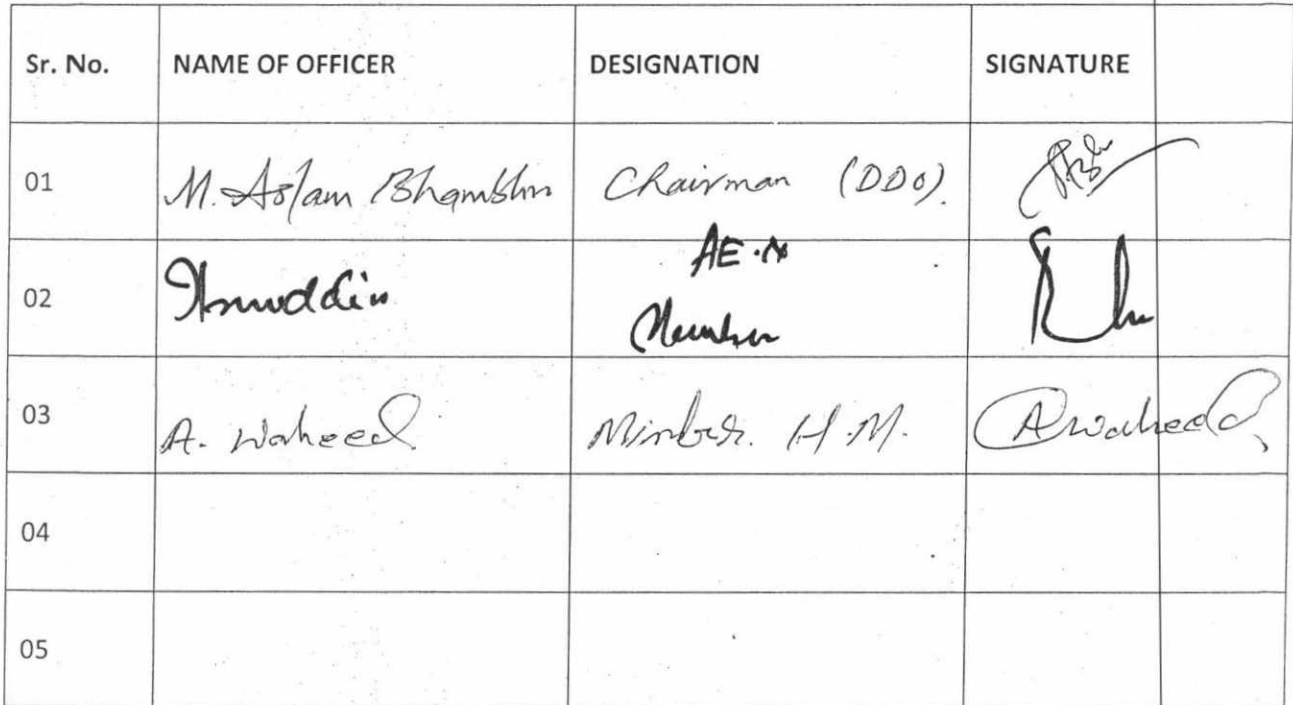 Sr. No. NAME OF OFFICER DESIGNATION SIGNATURE
01 M. Aslam Bhambhro Chairman (DDO).
AE.
02 Member
03 A. Waheed Mimber. H.M. Awaheed
04
05